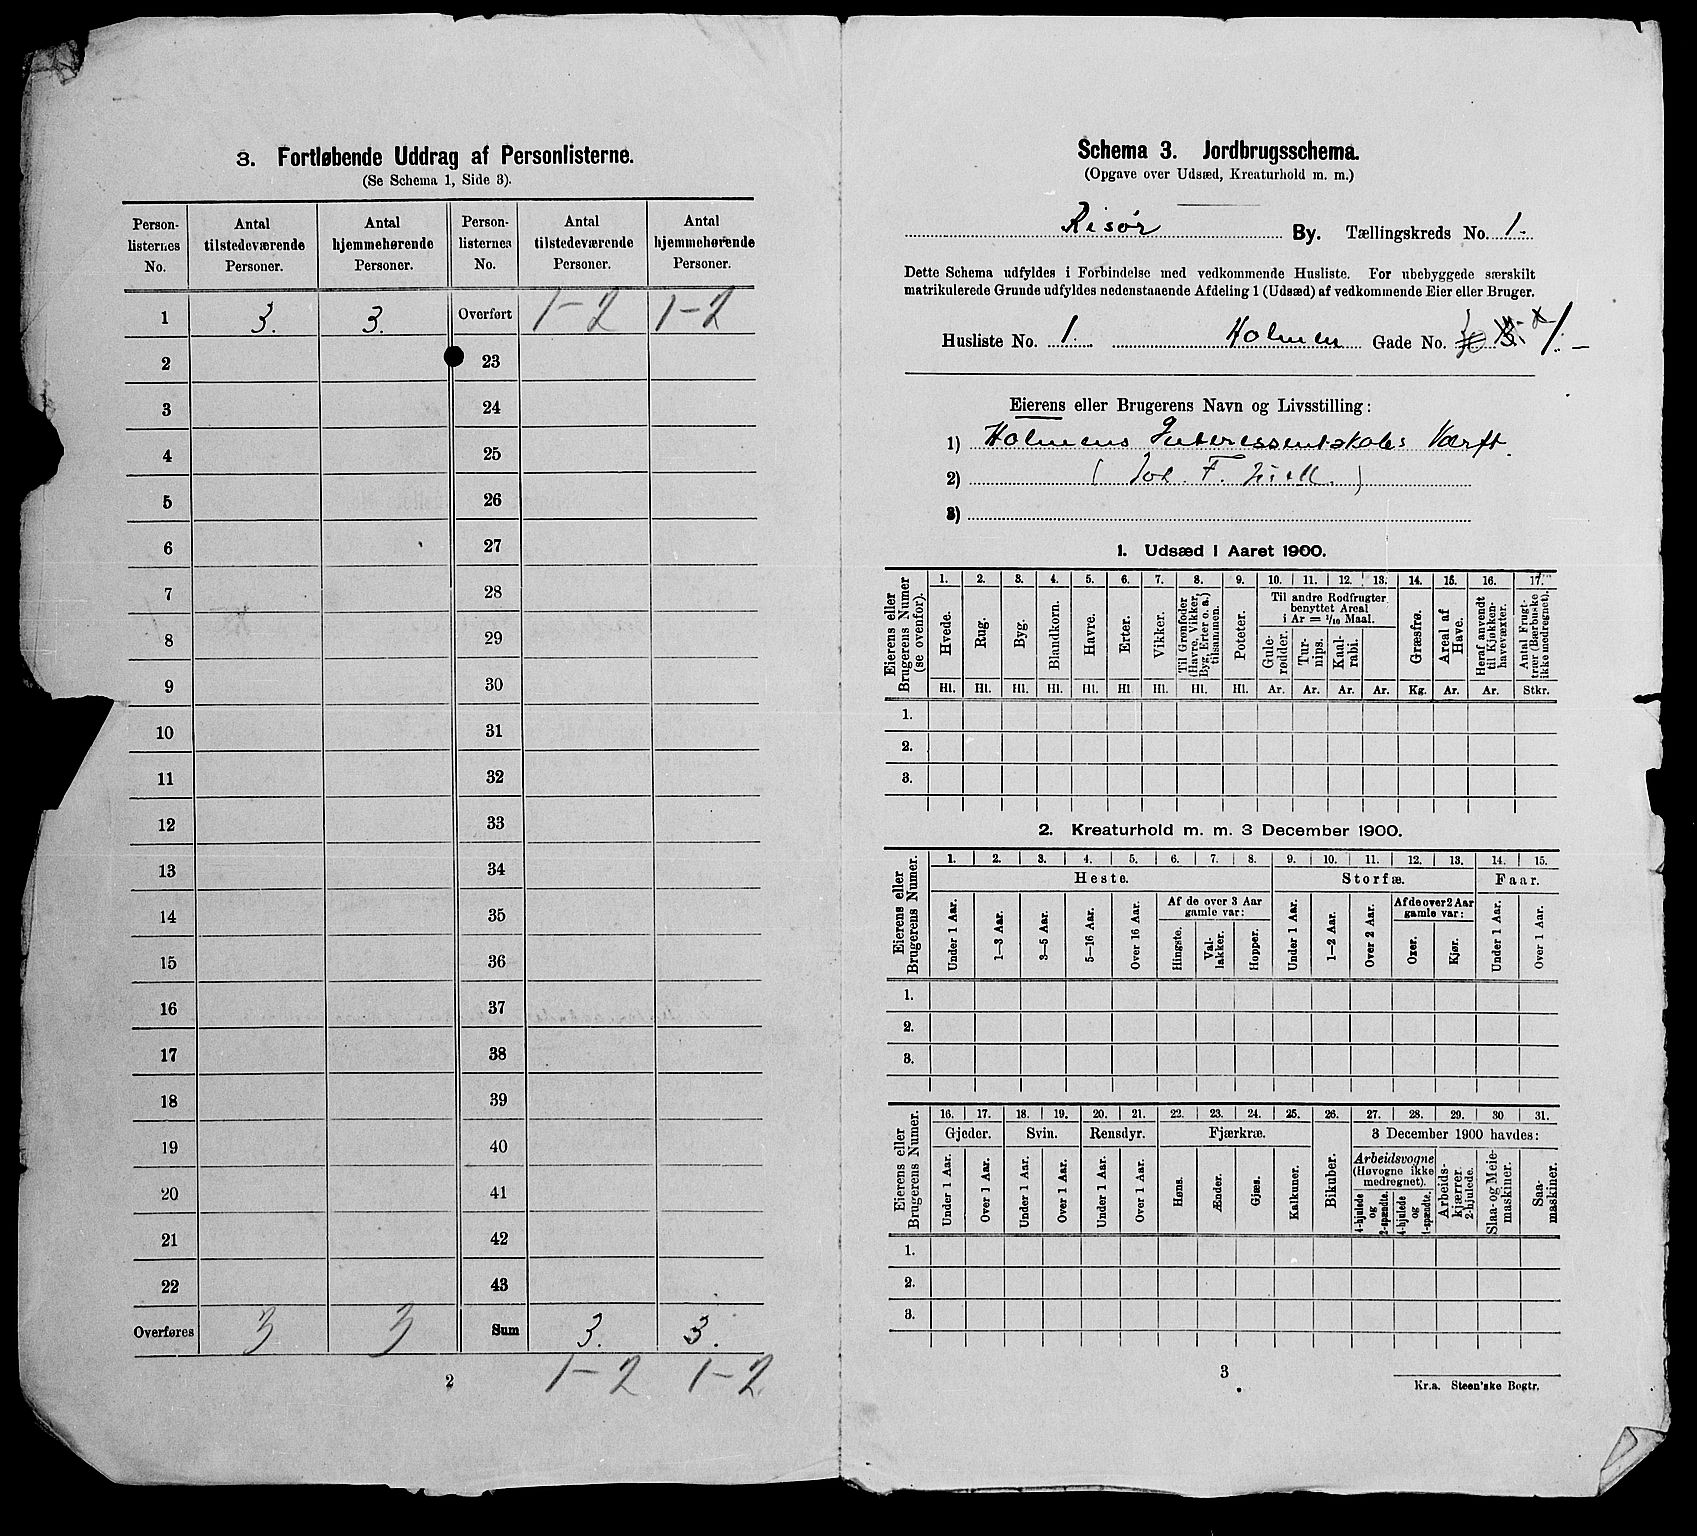 3. Fortløbende Uddrag af Personlisterne.
(Se Schema 1, Side 3).
Person-listernes No. | Antal tilstedeværende Personer. | Antal hjemmehørende Personer. | Person-listernes No. | Antal tilstedeværende Personer. | Antal hjemmehørende Personer.
1 | 3. | 3. | Overført | 1-2 | 1-2
2 | 23
3 | 24
4 | 25
5 | 26
6 | 27
7 | 28
8 | 29
9 | 30
10 | 31
11 | 32
12 | 33
13 | 34
14 | 35
15 | 36
16 | 37
17 | 38
18 | 39
19 | 40
20 | 41
21 | 42
22 | 43
Overføres | 3 | 3 | Sum | 3. | 3.
1-2 1-2
2
Schema 3. Jordbrugsschema.
(Opgave over Udsæd, Kreaturhold m. m.)
Risør By. Tællingskreds No. 1.
Dette Schema udfyldes i Forbindelse med vedkommende Husliste. For ubebyggede særskilt
matrikulerede Grunde udfyldes nedenstaaende Afdeling 1 (Udsæd) af vedkommende Eier eller Bruger.
Husliste No. 1. Holmen Gade No. 1.
Eierens eller Brugerens Navn og Livsstilling:
1) Holmens Interessentskabs Værft.
2) ( F. )
3)
1. Udsæd i Aaret 1900.
Eierens eller Brugerens Numer (se ovenfor).
1. 2. 3. 4. 5. 6. 7. 8. 9. 10. 11. 12. 13. 14. 15. 16. 17.
Hvede. Rug. Byg. Blandkorn. Havre. Erter. Vikker. Til Grønfoder (Havre, Vikker, Byg, Erter o. a.) tilsammen. Poteter.
Til andre Rodfrugter benyttet Areal i Ar = 1/10 Maal.
Gule-rødder. Tur-nips. Kaal-rabi. Græsfrø. Areal af Have. Heraf anvendt til Kjøkken-havevæxter. Antal Frugt-trær (Bærbuske ikke medregnet).
Hl. Hl. Hl. Hl. Hl. Hl Hl. Hl. Hl. Ar. Ar. Ar. Ar. Kg. Ar. Ar. Stkr.
1.
2.
3.
2. Kreaturhold m. m. 3 December 1900.
Eierens eller Brugerens Numer.
1. 2. 3. 4. 5. 6. 7. 8. 9. 10. 11. 12. 13. 14. 15.
Heste. Storfæ. Faar.
Af de over 3 Aar gamle var: Af de over 2 Aar gamle var:
Under 1 Aar. 1—3 Aar. 3—5 Aar. 5—16 Aar. Over 16 Aar. Hingste. Val-lakker. Hopper. Under 1 Aar. 1—2 Aar. Over 2 Aar. Oxer. Kjør. Under 1 Aar. Over 1 Aar.
1.
2.
3.
Eierens eller Brugerens Numer.
16. 17. 18. 19. 20. 21. 22. 23. 24. 25. 26. 27. 28. 29. 30. 31.
Gjeder. Svin. Rensdyr. Fjærkræ. Bikuber. 3 December 1900 havdes:
Arbeidsvogne (Høvogne ikke medregnet).
Under 1 Aar. Over 1 Aar. Under 1 Aar. Over 1 Aar. Under 1 Aar. Over 1 Aar. Høns. Ænder. Gjæs. Kalkuner. 4-hjulede og 2-spændte. 4-hjulede og 1-spændte. Arbeids-kjærrer 2-hjulede. Slaa- og Meie-maskiner. Saa-maskiner.
1.
2.
3.
3
Kr.a. Steen'ske Bogtr.